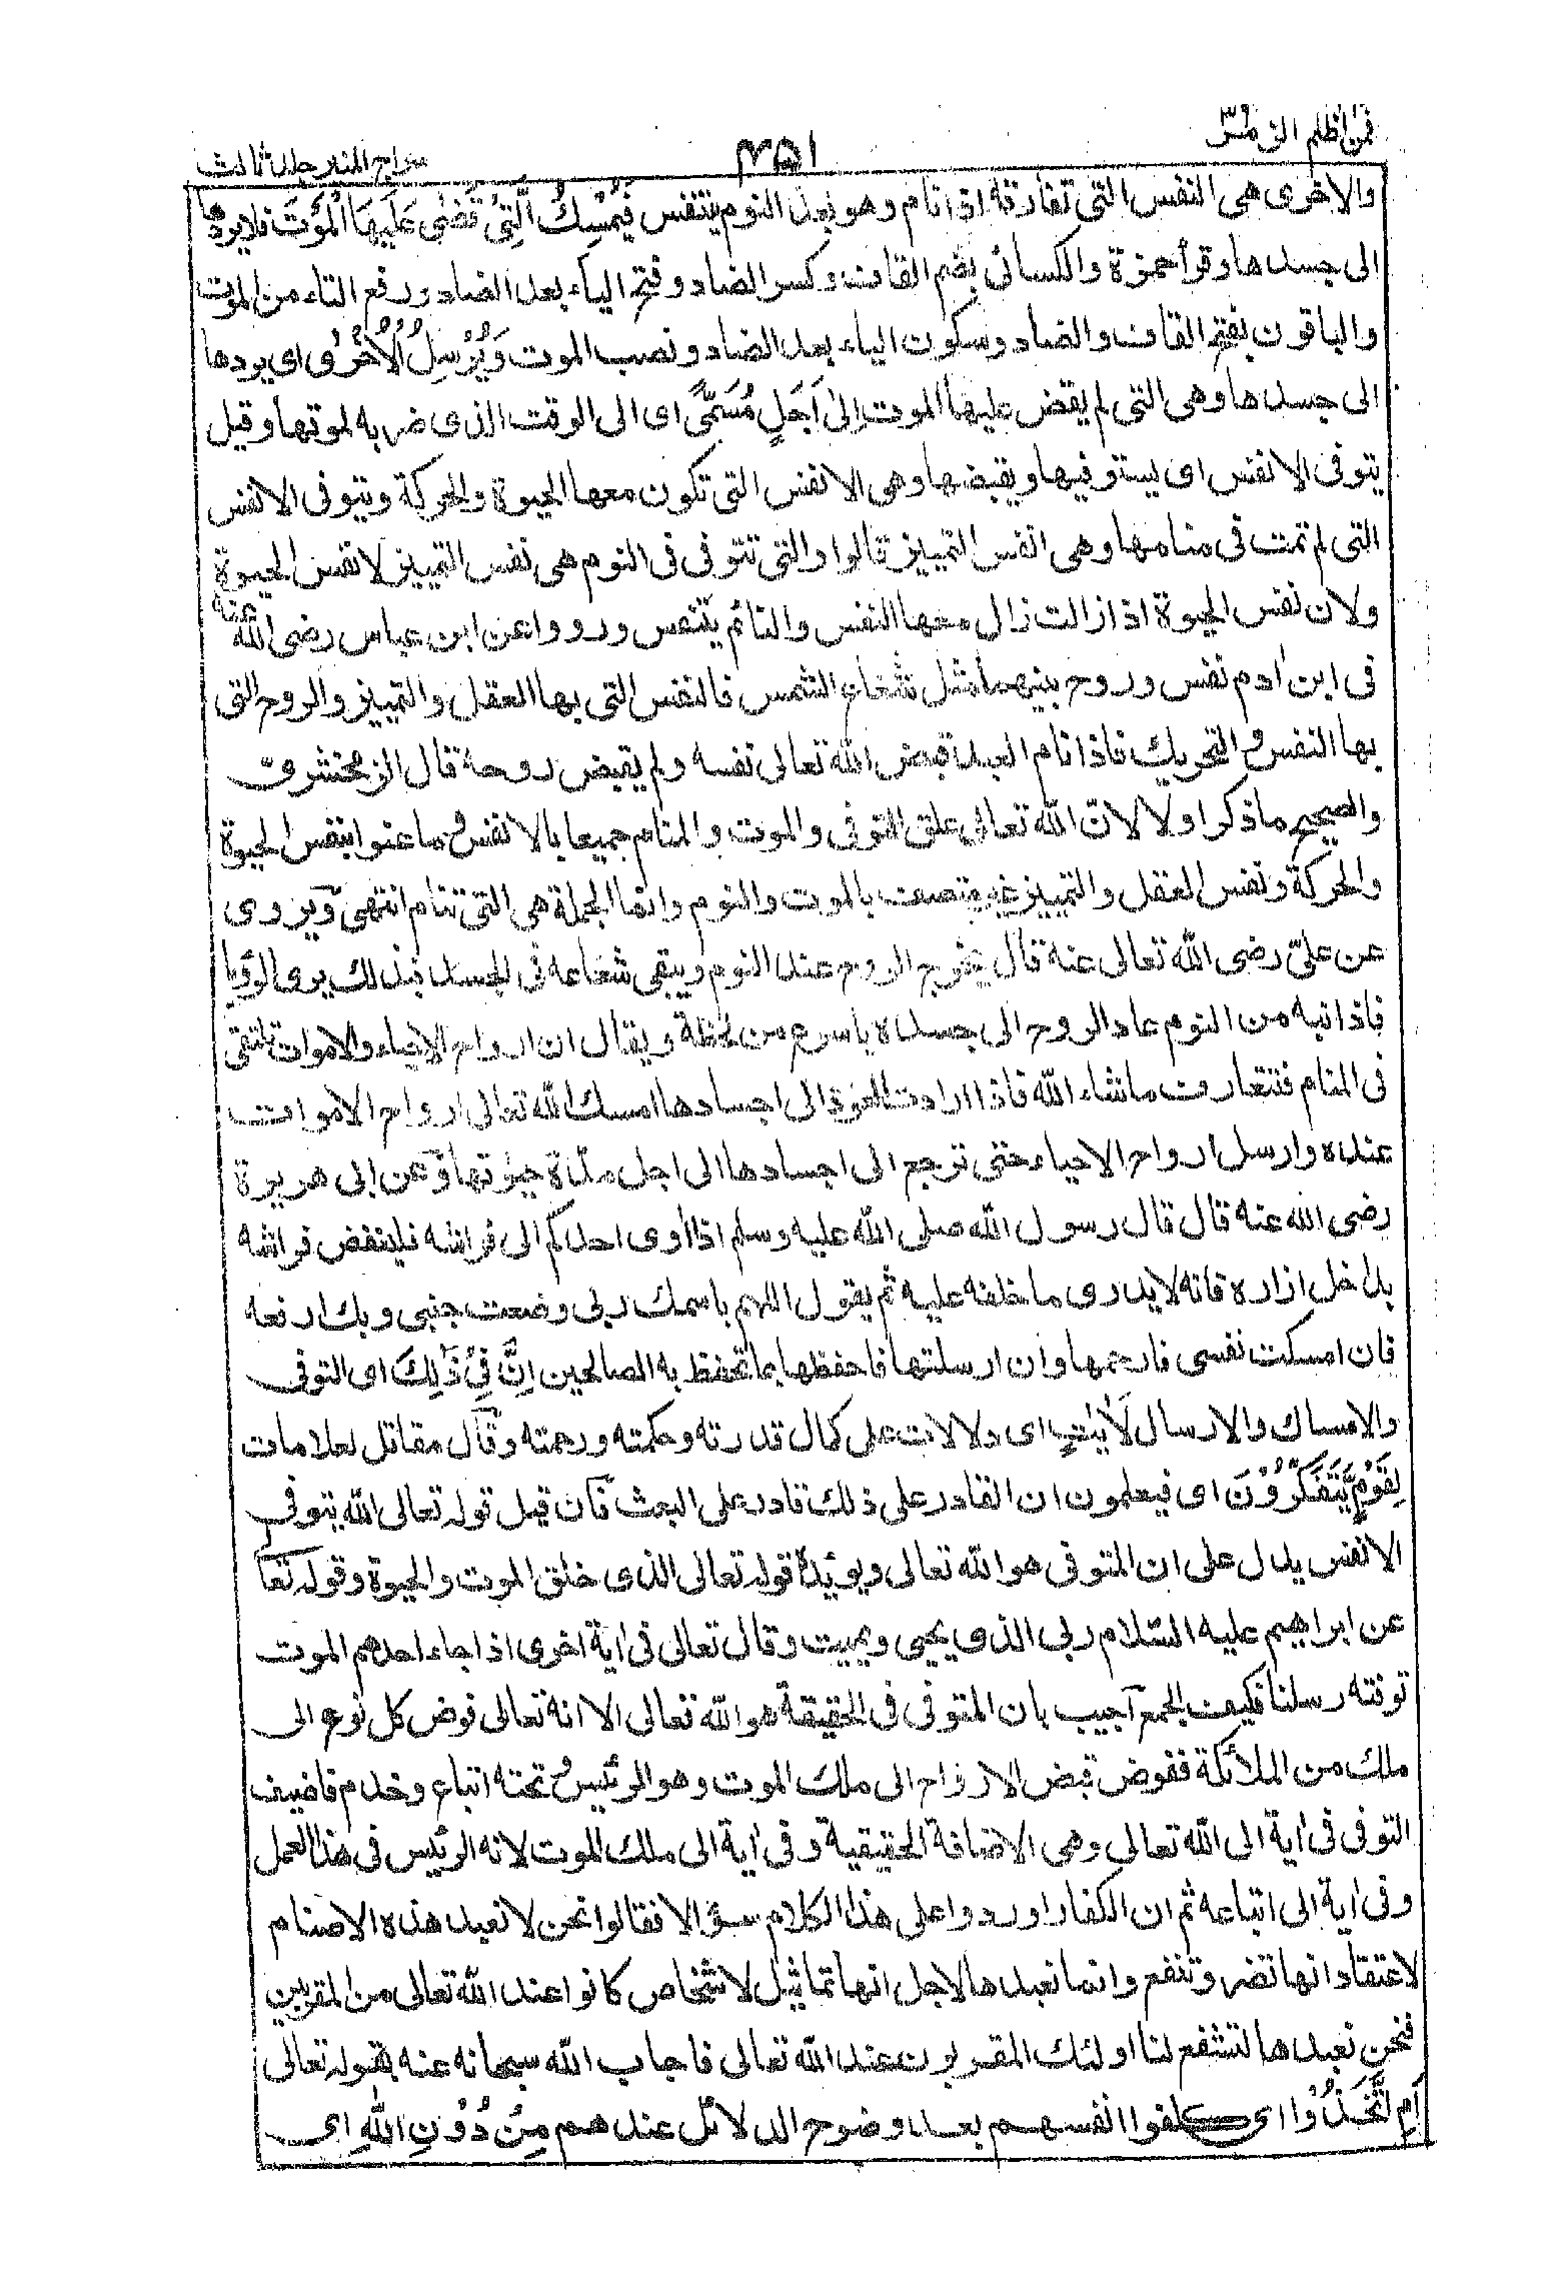 فمن اظلم الزمر
٤٥١
سراج المنير جلد ثالث
والاخرى هى النفس التى تفارقه اذا نام وهو بعد النوم يتنفس فَيُمْسِكُ الَّتِىْ قَضٰى عَلَيْهَا الْمَوْتَ فلا يردها
الى جسدها وقرأ حمزة والكسائى بضم القاف وكسر الضاد وفتح الياء بعد الضاد ورفع التاء من الموت
والباقون بفتح القاف والضاد وسكون الياء بعد الضاد ونصب الموت وَيُرْسِلُ الْاُخْرٰى اى يردها
الى جسدها وهى التى لم يقض عليها الموت اِلٰى اَجَلٍ مُّسَمًّى اى الى الوقت الذى ضربه لموتها وقيل
يتوفى الانفس اى يستوفيها ويقبضها وهى الانفس التى تكون معها الحيوة والحركة ويتوفى الانفس
التى لم تمت فى منامها وهى انفس التمييز قالوا والتى تتوفى فى النوم هى نفس التمييز لا نفس الحيوة
ولان نفس الحيوة اذا زالت زال معها النفس والنائم يتنفس ورووا عن ابن عباس رضى الله عنه
فى ابن اٰدم نفس وروح بينهما مثل شعاع الشمس فالنفس التى بها العقل والتمييز والروح التى
بها النفس والتحريك فاذا نام العبد قبض الله تعالى نفسه ولم يقبض روحه قال الزمخشرىّ
والصحيح ما ذكر اولا لانّ الله تعالى علق التوفى والموت والمنام جميعا بالانفس وما عنوا بنفس الحيوة
والحركة ونفس العقل والتمييز غير متصف بالموت والنوم وانما الجملة هى التى تنام انتهى ويروى
عن علىّ رضى الله تعالى عنه قال يخرج الروح عند النوم ويبقى شعاعه فى الجسد فبذلك يرى الرؤيا
فاذا نبه من النوم عاد الروح الى جسده باسرع من لحظة ويقال ان ارواح الاحياء والاموات تلتقى
فى المنام فتتعارف ما شاء الله فاذا ارادت العود الى اجسادها امسك الله تعالى ارواح الاموات
عنده وارسل ارواح الاحياء حتى ترجع الى اجسادها الى اجل مدّة حيوتها وعن ابى هريرة
رضى الله عنه قال قال رسول الله صلى الله عليه وسلم اذا أوى احدكم الى فراشه فلينفض فراشه
بداخل ازاره فانه لا يدرى ما خلفه عليه ثم يقول اللهم باسمك ربى وضعت جنبى وبك ارفعه
فان امسكت نفسى فارحمها وان ارسلتها فاحفظها بما تحفظ به الصالحين اِنَّ فِىْ ذٰلِكَ اى التوفى
والامساك والارسال لَاٰيٰتٍ اى دلالات على كمال قدرته وحكمته ورحمته وقال مقاتل لعلامات
لِقَوْمٍ يَّتَفَكَّرُوْنَ اى فيعلمون ان القادر على ذلك قادر على البعث فان قيل قوله تعالى الله يتوفى
الانفس يدل على ان المتوفى هو الله تعالى ويويّده قوله تعالى الذى خلق الموت والحيوة وقوله تعا
عن ابراهيم عليه السّلام ربى الذى يحيى ويميت وقال تعالى فى اٰية اخرى اذا جاء احدهم الموت
توفته رسلنا فكيف الجمع اجيب بان المتوفى فى الحقيقة هو الله تعالى الا انه تعالى فوض كل نوع الى
ملك من الملائكة ففوض قبض الارواح الى ملك الموت وهو الرئيس وتحته اتباع وخدم فاضيف
التوفى فى اٰية الى الله تعالى وهى الاضافة الحقيقية وفى اٰية الى ملك الموت لانه الرئيس فى هذا العمل
وفى اٰية الى اتباعه ثم ان الكفار اوردوا على هذا الكلام سؤالا فقالوا نحن لا نعبد هذه الاصنام
لاعتقاد انها تضر وتنفع وانما نعبدها لاجل انها تماثيل لاشخاص كانوا عند الله تعالى من المقربين
فنحن نعبدها لتشفع لنا اولئك المقربون عند الله تعالى فاجاب الله سبحانه عنه بقوله تعالى
اَمِ اتَّخَذُوْا اى كلفوا انفسهم بعد وضوح الدلائل عندهم مِنْ دُوْنِ اللّٰهِ اى